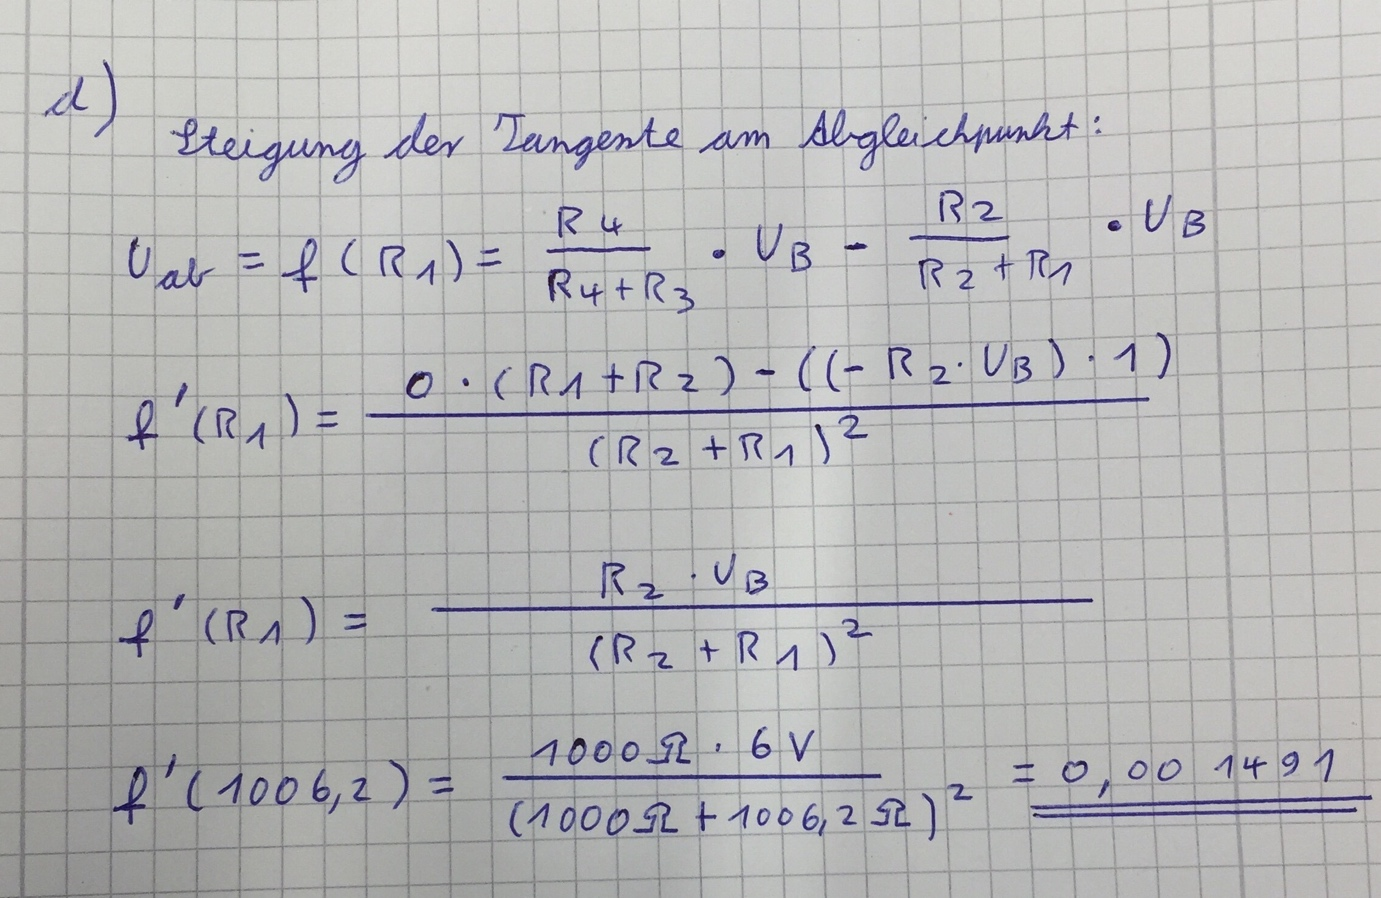 d)
Steigung der Tangente am Abgleichpunkt:
U_ab = f(R1) = R4/(R4+R3) · UB - R2/(R2+R1) · UB
f'(R1) = (0 · (R1+R2) - ((-R2 · UB) · 1))/(R2+R1)²
f'(R1) = (R2 · UB)/(R2+R1)²
f'(1006,2) = (1000Ω · 6V)/(1000Ω+1006,2Ω)² = 0,001491